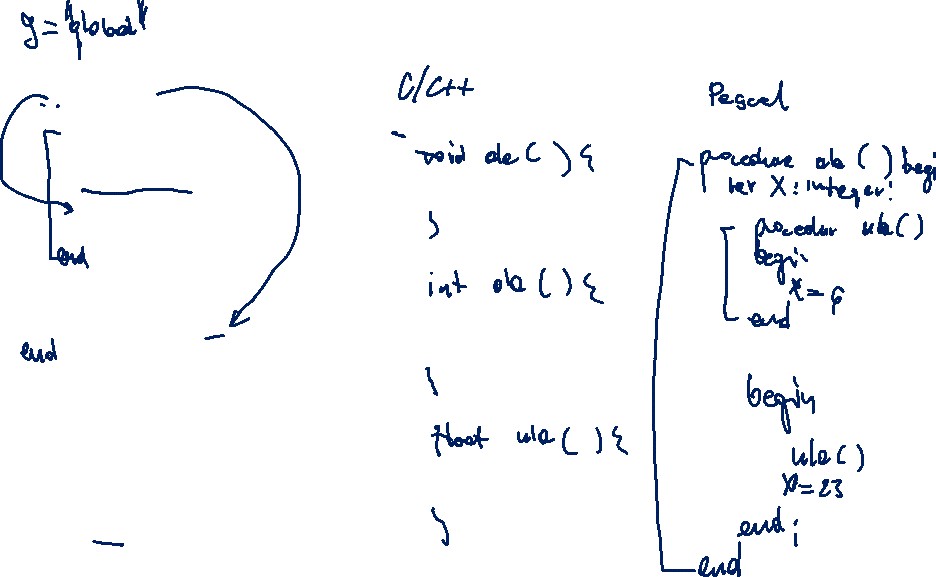 g = "global"
end
end
C/C++
void ole ( ) {
}
int ole ( ) {
}
float ule ( ) {
}
Pascal
procedure ole ( ) begin
var X : integer;
procedur ule ( )
begin
X = 6
end
begin
ule ( )
X = 23
end ;
end